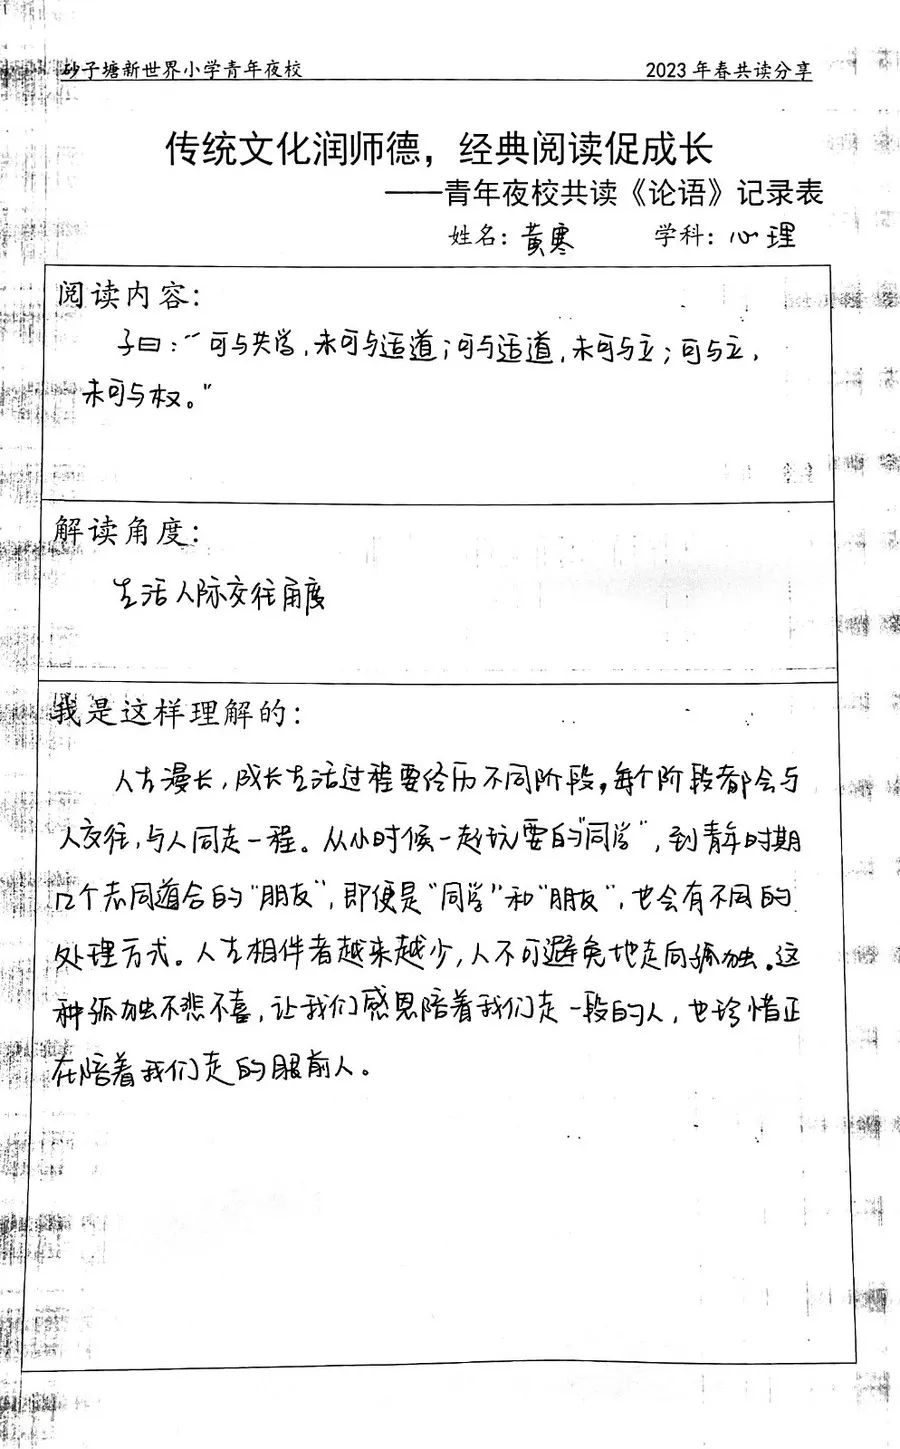 砂子塘新世界小学青年夜校 2023年春共读分享
传统文化润师德，经典阅读促成长
——青年夜校共读《论语》记录表
姓名：黄寒 学科：心理
阅读内容：
子曰：“可与共学，未可与适道；可与适道，未可与立；可与立，
未可与权。”
解读角度：
生活人际交往角度
我是这样理解的：
人生漫长，成长生活过程要经历不同阶段，每个阶段都会与
人交往，与人同走一程。从小时候一起玩耍的“同学”，到青年时期
几个志同道合的“朋友”，即便是“同学”和“朋友”，也会有不同的
处理方式。人生相伴者越来越少，人不可避免地走向孤独。这
种孤独不悲不喜，让我们感恩陪着我们走一段的人，也珍惜正
在陪着我们走的眼前人。